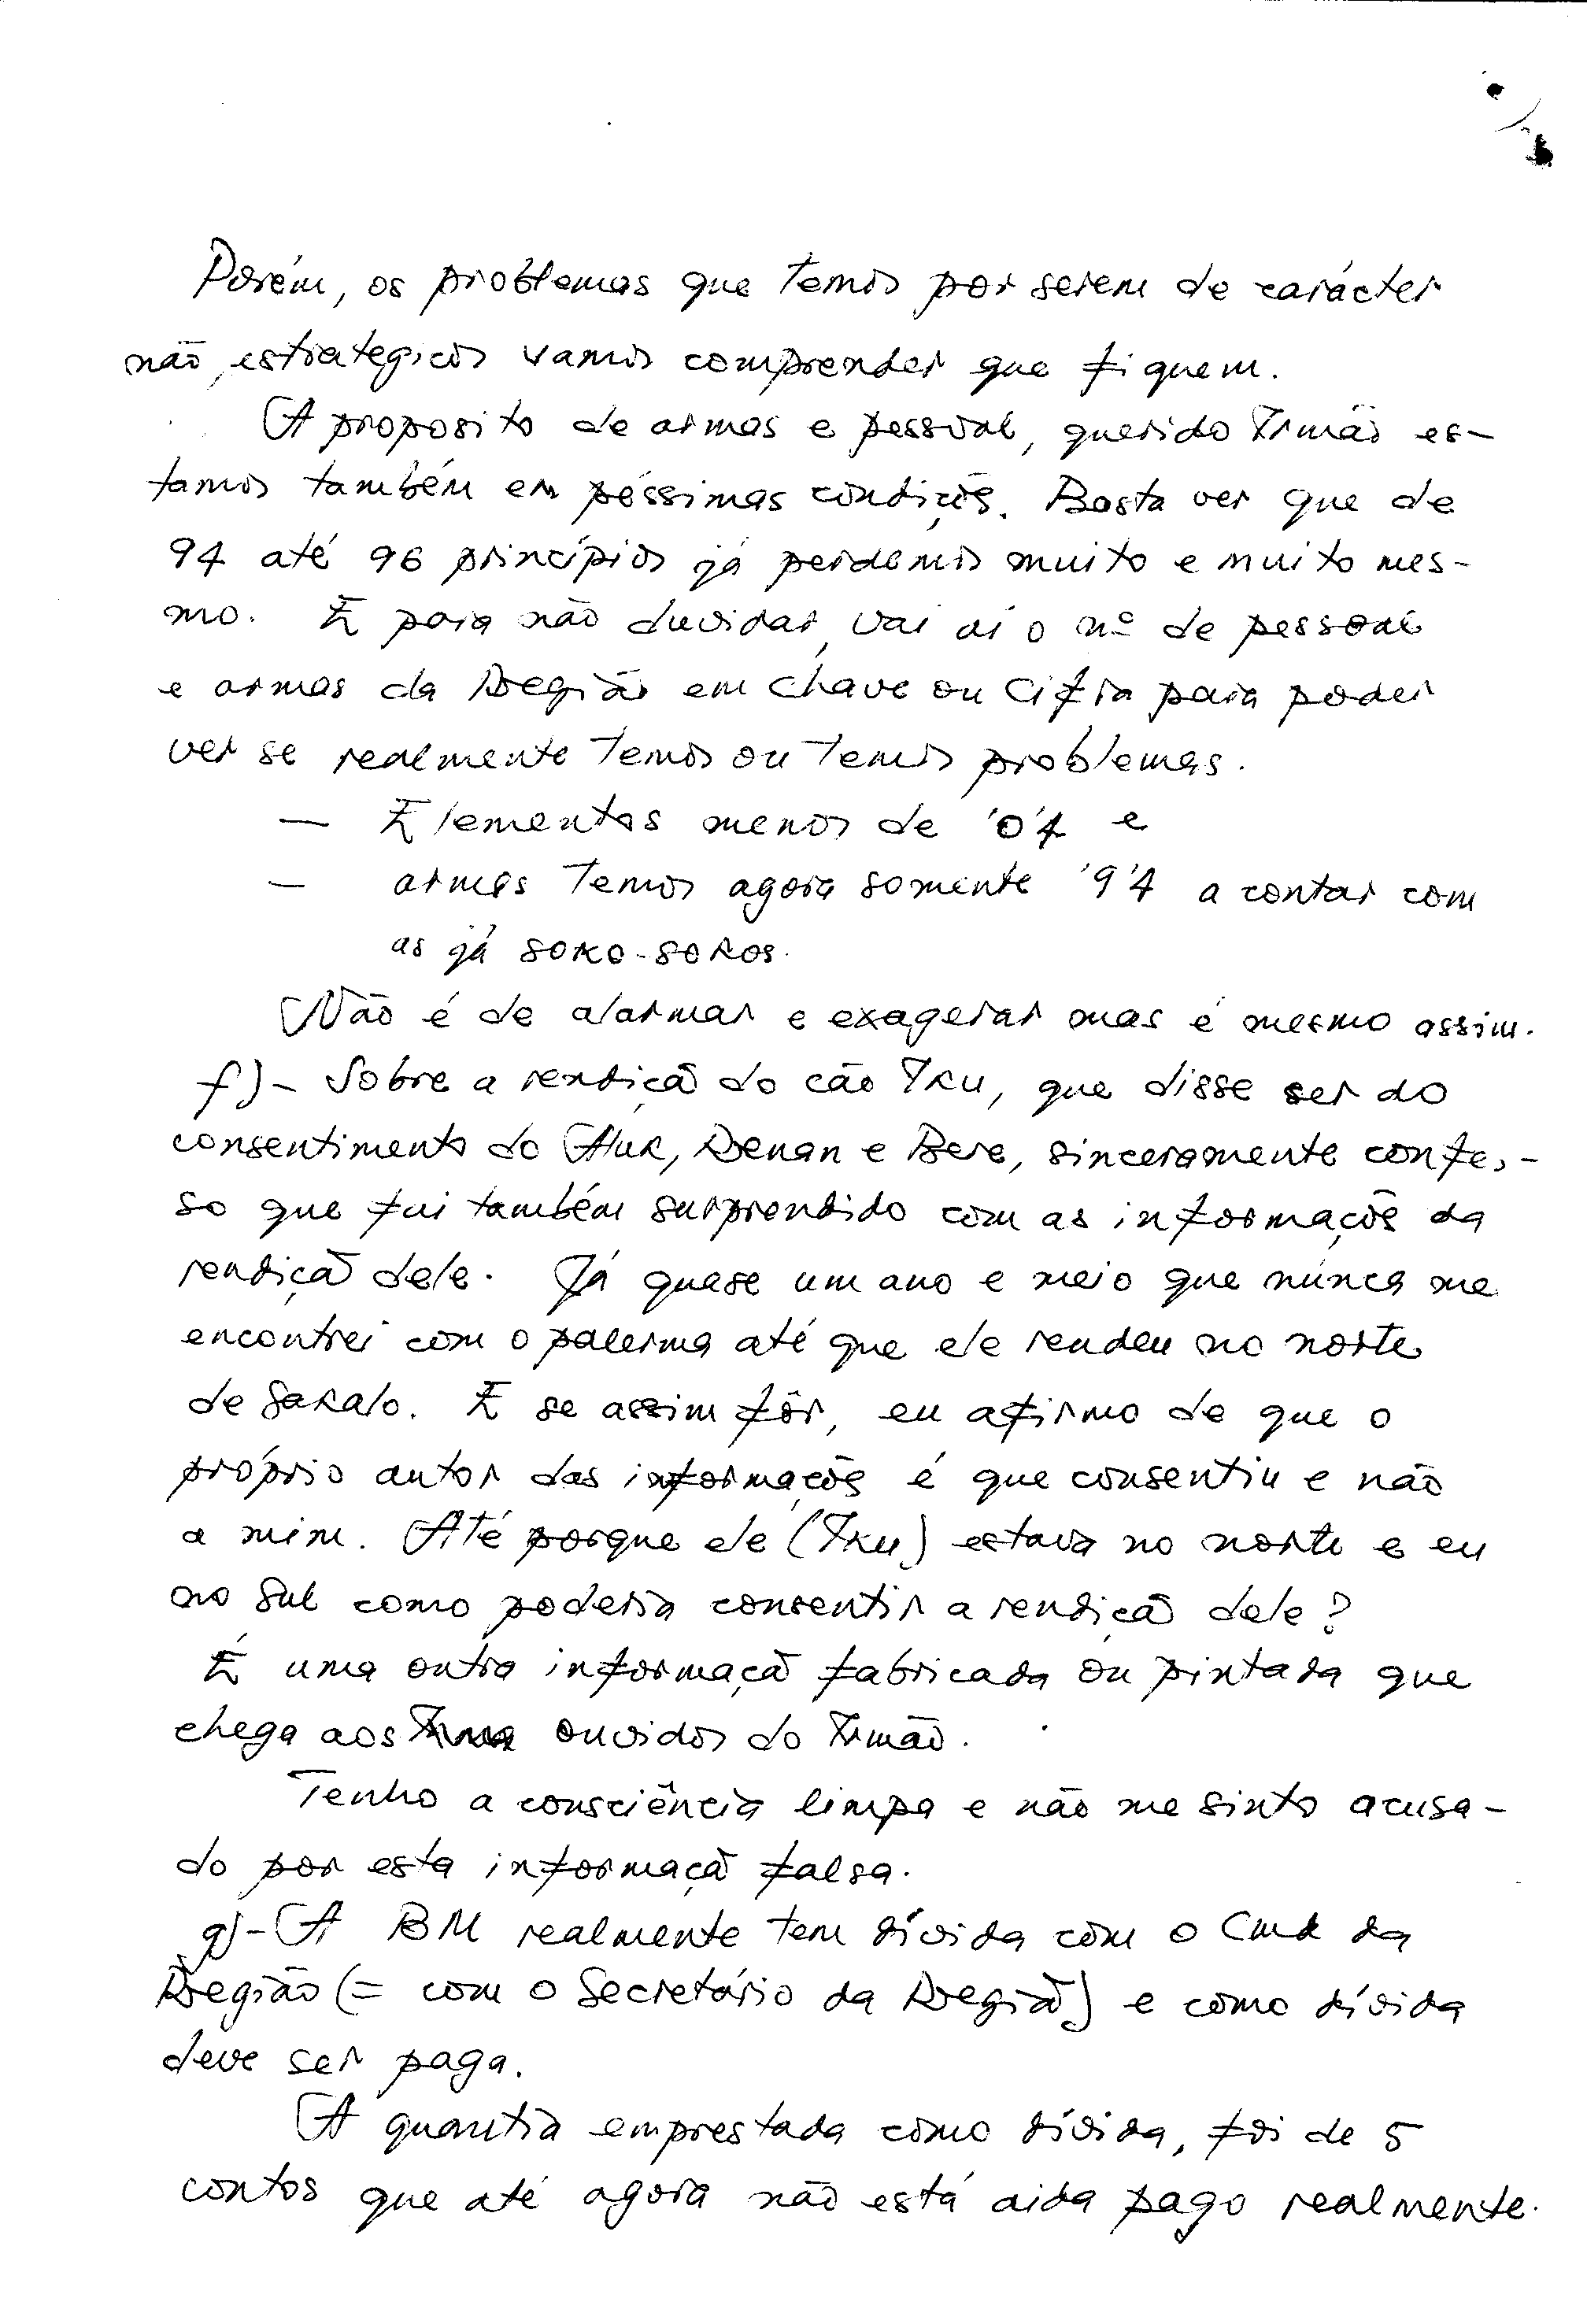 Porém, os problemas que temos por serem de carácter
não, estrategicos vamos comprender que fiquem.
A proposito de armas e pessoal, querido Irmão es-
tamos também em péssimas condições. Basta ver que de
94 até 96 princípios já perdemos muito e muito mes-
mo. E para não duvidar, vai aí o nº de pessoal
e armas da Região em chave ou cifra para poder
ver se realmente temos ou temos problemas.
— Elementos menos de '0'4 e
— armas temos agora somente '9'4 a contar com
as já soko-sokos.
Não é de alarmar e exagerar mas é mesmo assim.
f)- Sobre a rendiçã do cão Iku, que disse ser do
consentimento do Aluk, Renan e Bere, sinceramente confes-
so que fui também surprendido com as informaçõs da
rendiçã dele. Já quase um ano e meio que núnca me
encontrei com o palerma até que ele rendeu no norte
de Sakalo. E se assim fôr, eu afirmo de que o
próprio autor das informaçõs é que consentiu e não
a mim. Até porque ele (Iku) estava no norte e eu
no Sul como poderia consentir a rendiçã dele?
É uma outra informaçã fabricada ou pintada que
chega aos ouvidos do Irmão.
Tenho a consciência limpa e não me sinto acusa-
do por esta informaçã falsa.
g)- A BM realmente tem dívida com o Cmd da
Região (= com o Secretário da Regiã) e como dívida
deve ser paga.
A quantia emprestada como dívida, foi de 5
contos que até agora não está aida pago realmente.